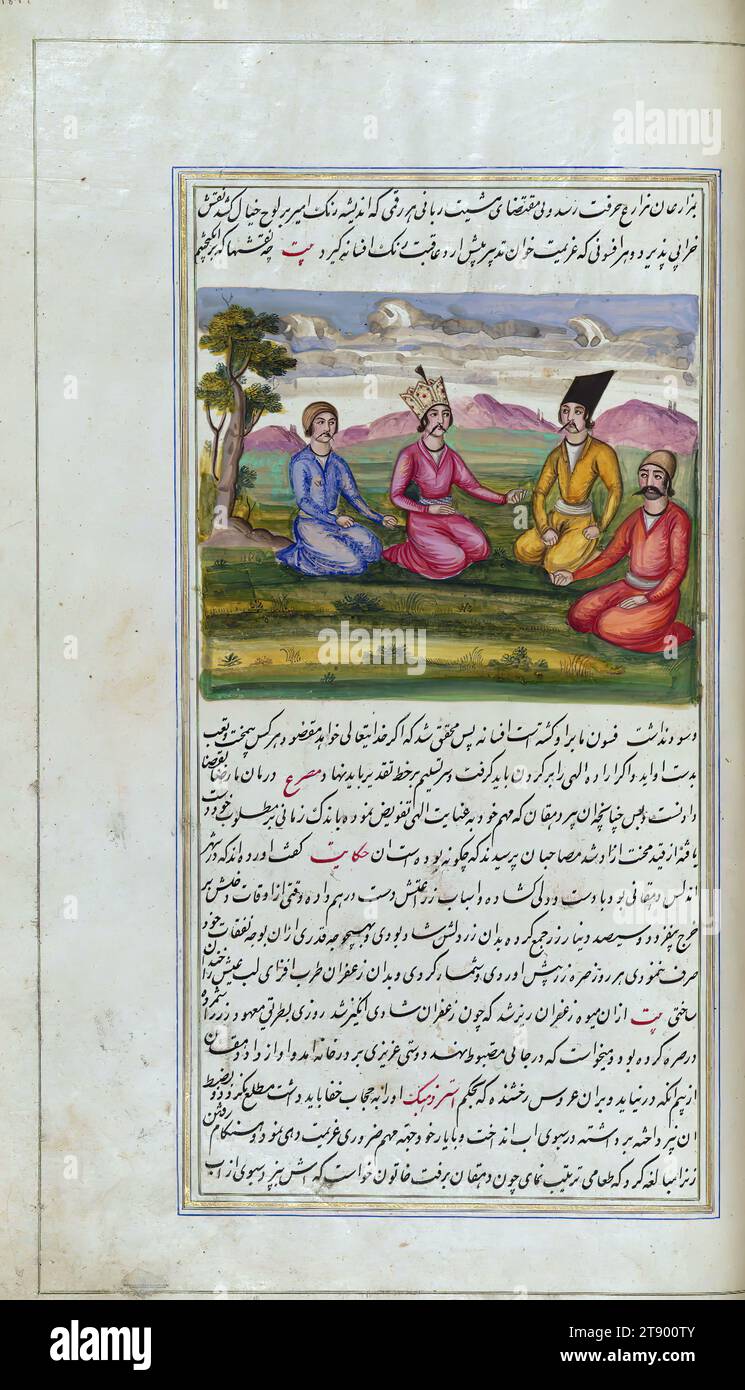 بزارعان مزارع حرفت رسد ولی مقتضای مشیت ربانی هر رقمی که اندیشه رنک امیز بر لوح خیال کشد نقش
خرابی پذیرد و هر افسونی که عزیمت خوان تدبیر پیش ارد عاقبت رنک افسانه کیرد بیت چه نقشها که برانکیختیم
وسود نداشت فسون ما بر او کشته است افسانه پس محقق شد که اکر خدایتعالی خواهد مقصود هر کس بی محنت و تعب
بدست اواید و اکر اراده الهی را بر کردن باید کرفت و سر تسلیم بر خط تقدیر باید نهاد مصرع درمان ما رضا بقضا
دادنست و بس چنانچه ان پیر دهقان که مهم خود به عنایت الهی تفویض نموده باندک زمانی بر مطلوب خود دست
یافته از قید محنت ازاد شد مصاحبان پرسیدند که چکونه بوده است ان حکایت کفت اورده اند که در شهر
اندلس دهقانی بود با دست و دلی کشاده و اسباب زراعتش دست درهم داده وقتی از اوقات دخلش بر
خرج بیفزود و سیصد دینار زر جمع کرده بدان زر دلش شاد بودی و بهیچوجه قدری ازان بوجه نفقات خود
صرف ننمودی هر روز صره زر پیش اوردی و شمار کردی و بدان زعفران طرب افزای لب عیش را خندان
ساختی بیت ازان میوه زعفران ریز شد که چون زعفران شادی انکیز شد روزی بطریق معهود زر را شمرده
در صره کرده بود و میخواست که در جائی مضبوط بنهد دوستی عزیزی بر در خانه امد و اواز داد دهقان
از بیم انکه درنیاید و بران عروس رخشنده که بحکم استر ذهبک اورا به حجاب خفا باید داشت مطلع نکردد بضبط
ان نپرداخته برداشته در سبوی اب انداخت و با یار خود جهه مهم ضروری عزیمت دهی نمود و هنکام رفتن
زنرا مبالغه کرد که طعامی ترتیب نمای چون دهقان برفت خاتون خواست که اش پزد سبوی از اب
alamy
Image ID: 2T900TY
www.alamy.com